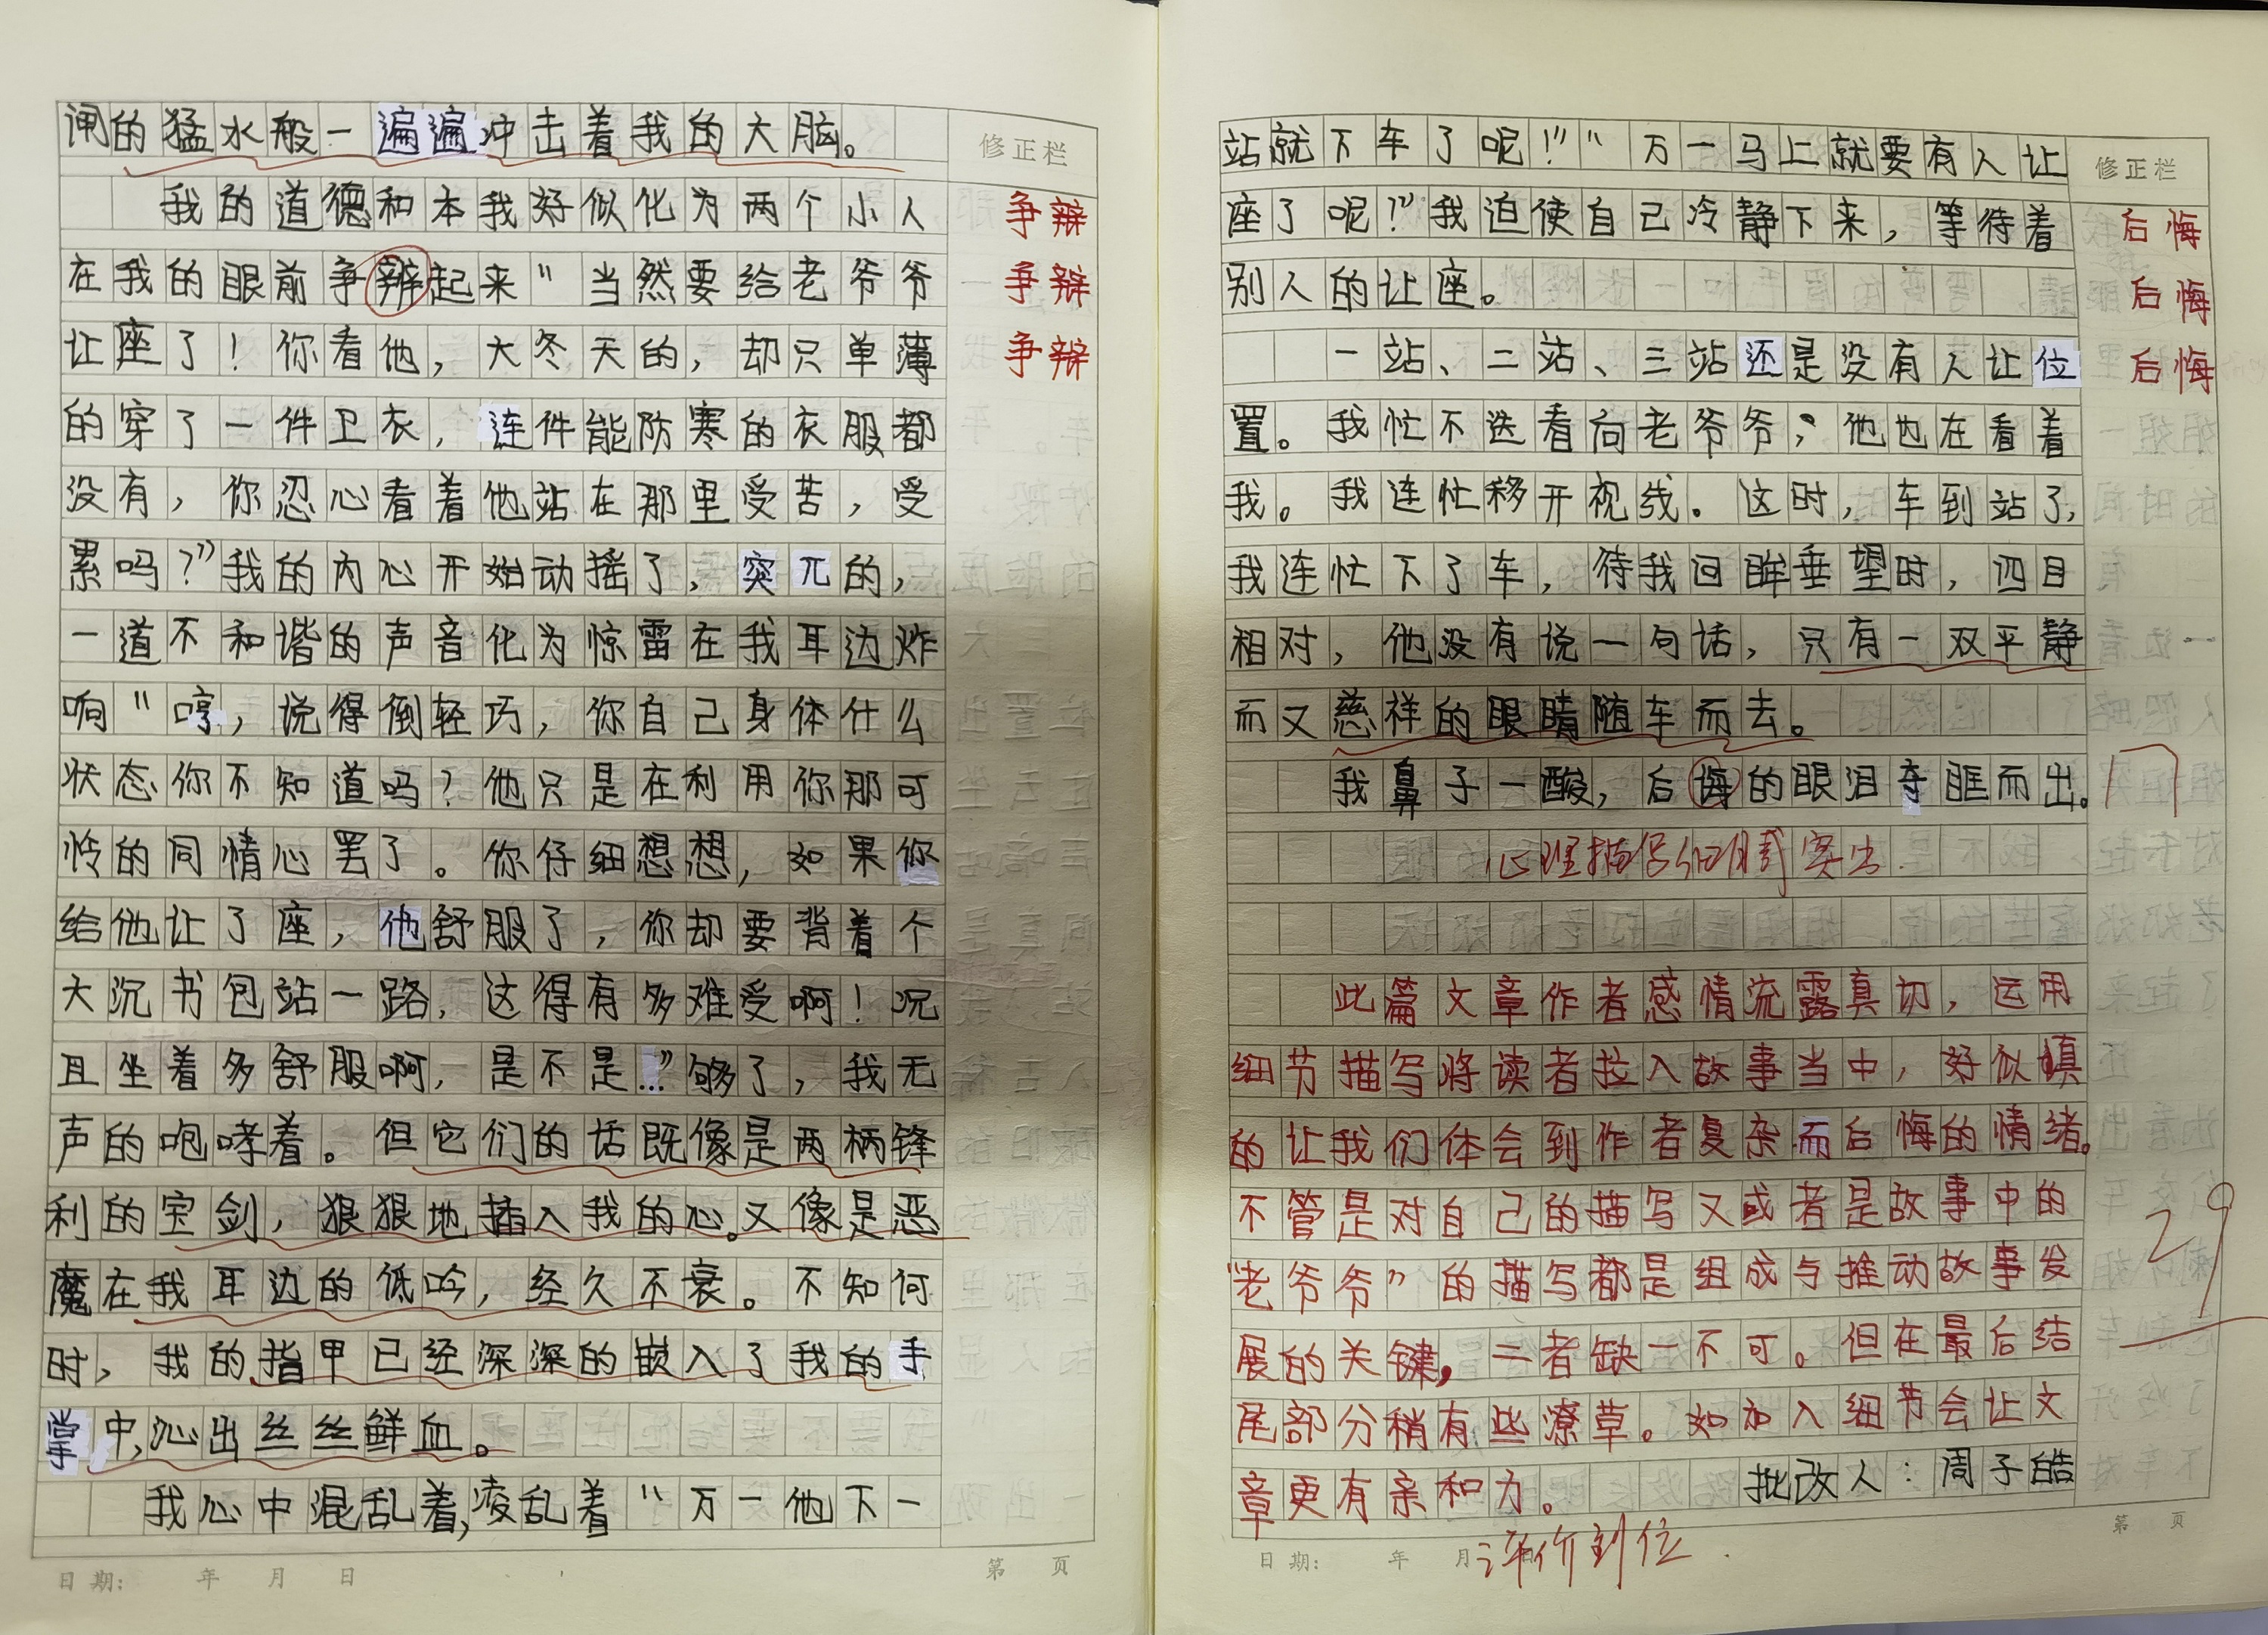 闸的猛水般一遍遍冲击着我的大脑。
修正栏
我的道德和本我好似化为两个小人
争辩
在我的眼前争辨起来“当然要给老爷爷
争辩
让座了！你看他，大冬天的，却只单薄
争辩
的穿了一件卫衣，连件能防寒的衣服都
没有，你忍心看着他站在那里受苦，受
累吗？”我的内心开始动摇了，突兀的，
一道不和谐的声音化为惊雷在我耳边炸
响“哼，说得倒轻巧，你自己身体什么
状态你不知道吗？他只是在利用你那可
怜的同情心罢了。你仔细想想，如果你
给他让了座，他舒服了，你却要背着个
大沉书包站一路，这得有多难受啊！况
且坐着多舒服啊，是不是…”够了，我无
声的咆哮着。但它们的话既像是两柄锋
利的宝剑，狠狠地插入我的心。又像是恶
魔在我耳边的低吟，经久不衰。不知何
时，我的指甲已经深深的嵌入了我的手
掌中，沁出丝丝鲜血。
我心中混乱着，凌乱着“万一他下一
日期： 年 月 日
第 页
站就下车了呢！”“万一马上就要有人让
修正栏
座了呢？”我迫使自己冷静下来，等待着
后悔
别人的让座。
后悔
一站、二站、三站还是没有人让位
后悔
置。我忙不迭看向老爷爷，他也在看着
我。我连忙移开视线。这时，车到站了，
我连忙下了车，待我回眸垂望时，四目
相对，他没有说一句话，只有一双平静
而又慈祥的眼睛随车而去。
我鼻子一酸，后悔的眼泪夺眶而出。
心理描写细腻突出
此篇文章作者感情流露真切，运用
细节描写将读者拉入故事当中，好似慎
的让我们体会到作者复杂而后悔的情绪。
不管是对自己的描写又或者是故事中的
29
“老爷爷”的描写都是组成与推动故事发
展的关键，二者缺一不可。但在最后结
尾部分稍有些潦草。如加入细节会让文
章更有亲和力。 批改人：周子皓
评价到位
日期： 年 月 日
第 页